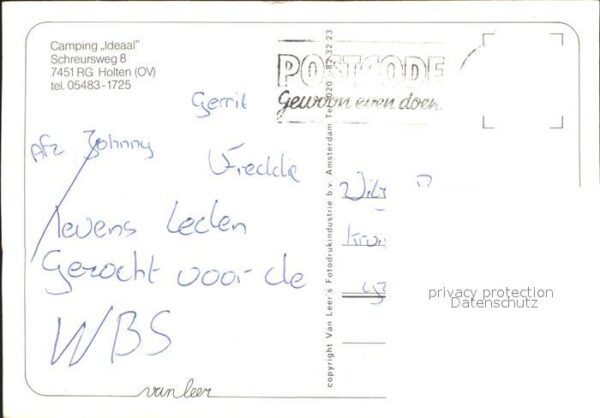 Camping „Ideaal"
Schreursweg 8
7451 RG Holten (OV)
tel. 05483-1725
POSTCODE
Gewoon even doen.
Gerrit
Afz Johnny
Freddie
levens leden
Gezocht voor de
WBS
van leer
copyright Van Leer's Fotodrukindustrie b.v. Amsterdam Tel. 020 - 82 32 23
privacy protection
Datenschutz